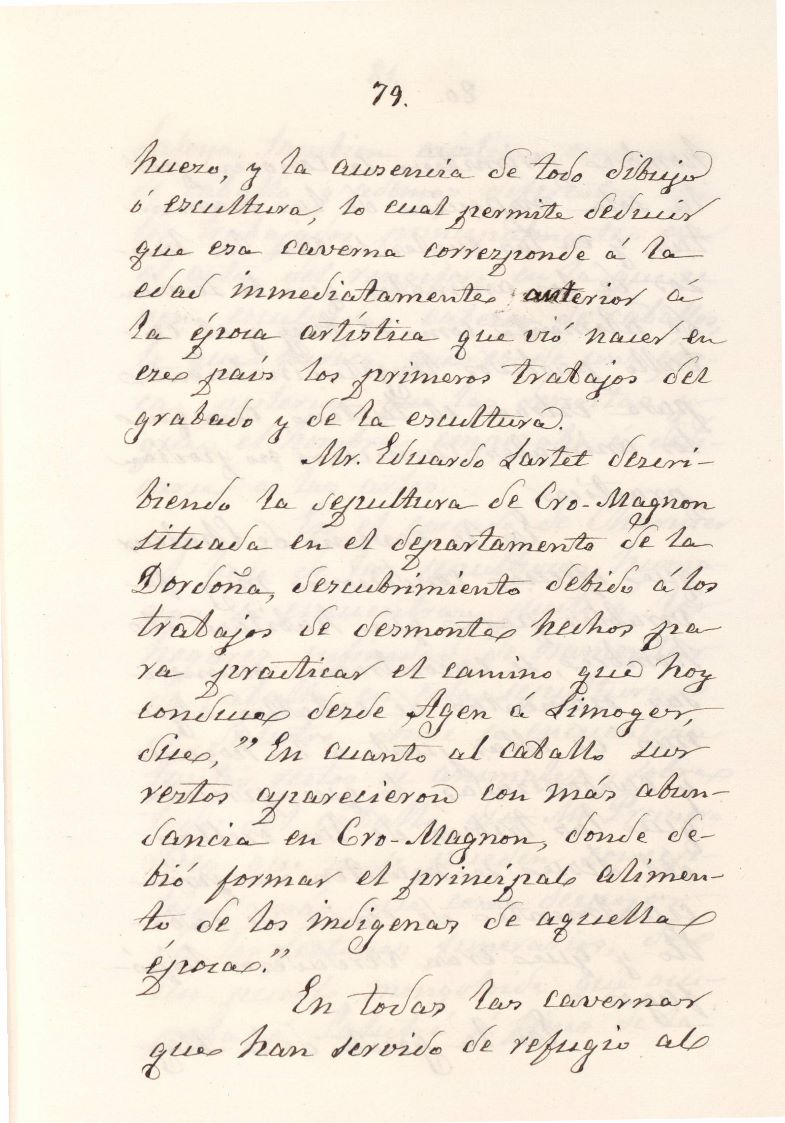 79.
hueso, y la ausencia de todo dibujo
ó escultura, lo cual permite deducir
que esa caverna corresponde á la
edad inmediatamente anterior á
la época artística que vió nacer en
ese país los primeros trabajos del
grabado y de la escultura.
Mr. Eduardo Lartet descri-
biendo la sepultura de Cro-Magnon
situada en el departamento de la
Dordoña, descubrimiento debido á los
trabajos de desmonte hechos pa
ra practicar el camino que hoy
conduce desde Agen á Limoges,
dice, "En cuanto al caballo sus
restos aparecieron con más abun-
dancia en Cro-Magnon, donde de-
bió formar el principal alimen-
to de los indígenas de aquella
época."
En todas las cavernas
que han servido de refugio al